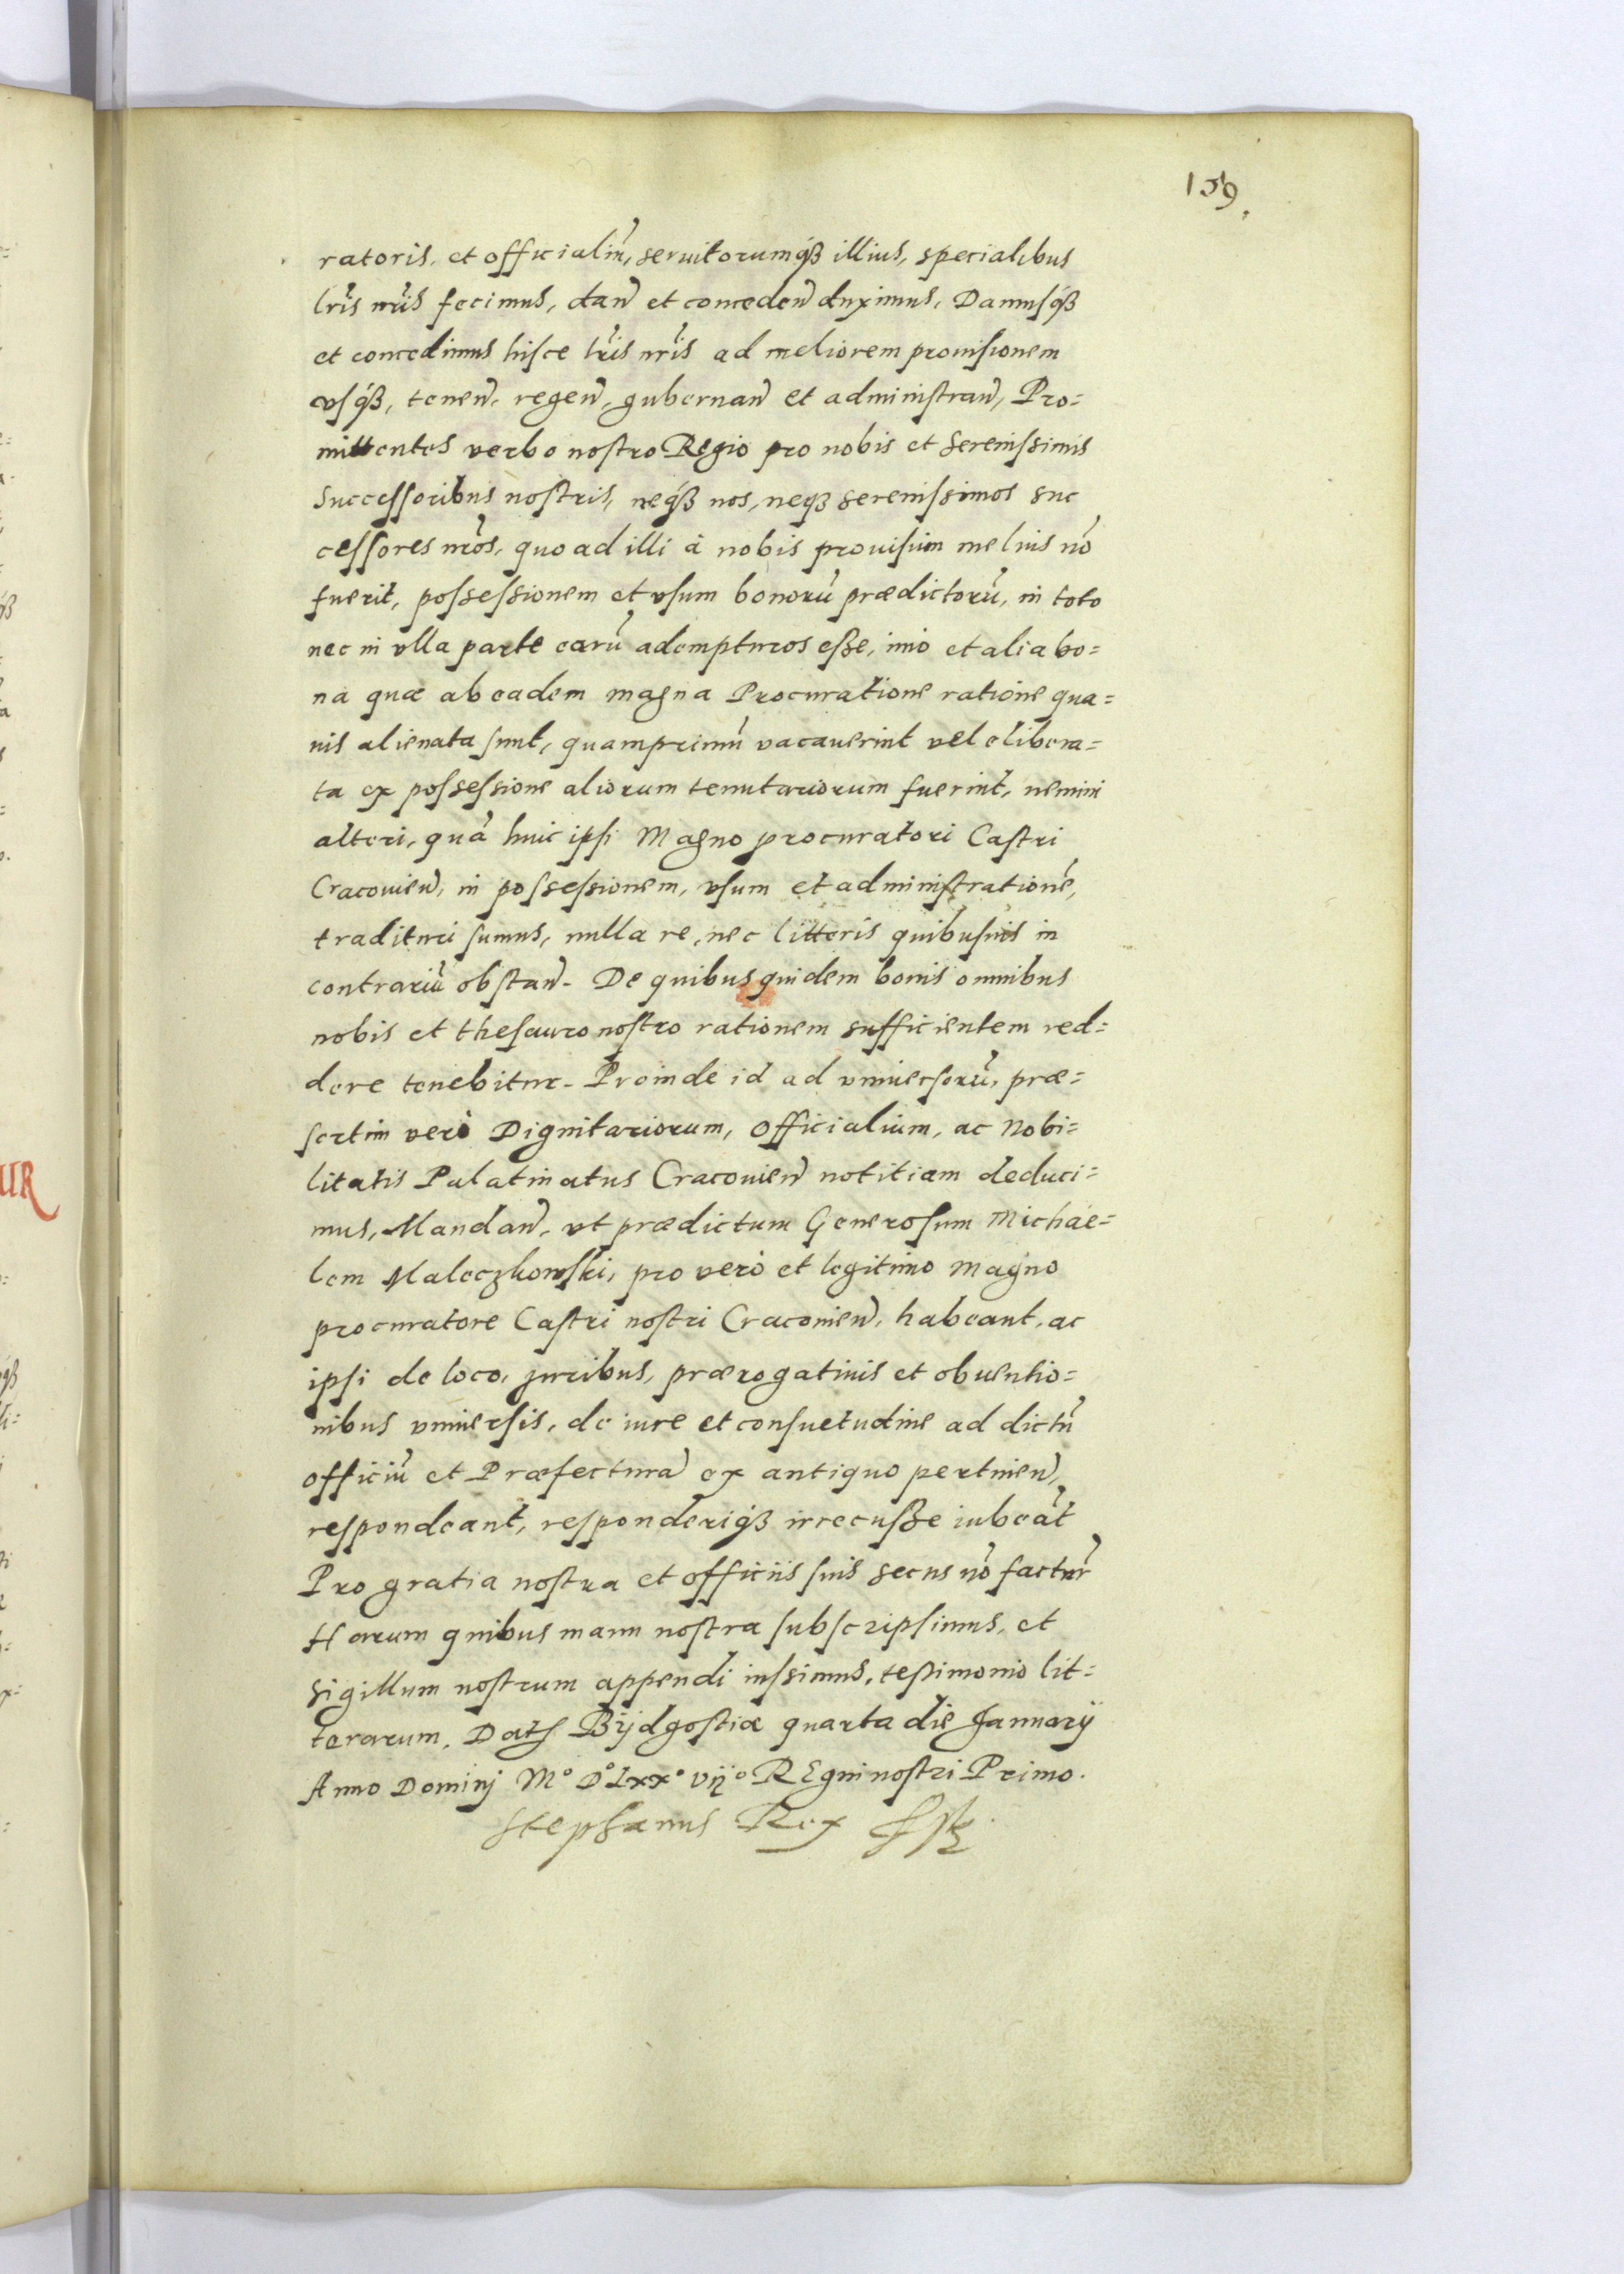 159.
ratoris, et officialiũ, seruitorumq́ꝫ illius, specialibus
lr̃is nr̃is fecimus, dan̄ et conceden̄ duximus, Damusq́ꝫ
et concedimus hisce lr̃is nr̃is ad meliorem prouisionem
vsq́ꝫ, tenen̄, regen̄, gubernan̄ et administran̄, Pro=
mittentes verbo nostro Regio pro nobis et Serenissimis
Successoribus nostris, neq́ꝫ nos, neqꝫ serenissimos suc
cessores nr̃os, quoad illi à nobis prouisum melius nõ
fuerit, possessionem et vsum bonorũ prædictorũ, in toto
nec in vlla parte earũ adempturos esse, imo et alia bo=
na quæ ab eadem magna Procuratione ratione qua=
uis alienata sunt, quamprimũ vacauerint vel elibera=
ta ex possessione aliorum tenutariorum fuerint, nemini
alteri, quã huic ipsi Magno procuratori Castri
Cracouien̄, in possessionem, vsum et administrationẽ,
tradituri sumus, nulla re, nec litteris quibusuis in
contrariũ obstan̄. De quibus quidem bonis omnibus
nobis et thesauro nostro rationem sufficientem red=
dere tenebitur. Proinde id ad vniuersorũ, præ=
sertim verò Dignitariorum, Officialium, ac Nobi=
litatis Palatinatus Cracouien̄ notitiam deduci=
mus, Mandan̄, vt prædictum Generosum Michae=
lem Maleczkowski, pro vero et legitimo Magno
procuratore Castri nostri Cracouien̄, habeant, ac
ipsi de loco, juribus, prærogatiuis et obuentio=
nibus vniuersis, de iure et consuetudine ad dictũ
officiũ et Præfecturã ex antiquo pertinen̄,
respondeant, responderiqꝫ irrecusse iubeãt
Pro gratia nostra et officiis suis secus nõ factur̃
Harum quibus manu nostra subscripsimus, et
sigillum nostrum appendi iussimus, testimonio lit=
terarum. Datꝭ Bÿdgostiæ quarta die Januarÿ
Anno Dominj Mº Dº Lxxº vijº REgni nostri Primo.
Stephanus Rex sst